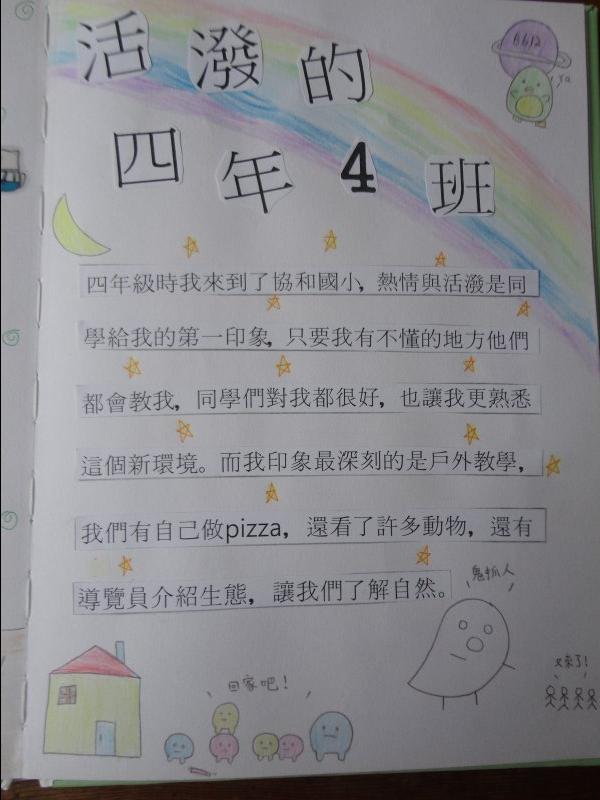 活潑的
四年4班
B612
Ya
四年級時我來到了協和國小，熱情與活潑是同
學給我的第一印象，只要我有不懂的地方他們
都會教我，同學們對我都很好，也讓我更熟悉
這個新環境。而我印象最深刻的是戶外教學，
我們有自己做pizza，還看了許多動物，還有
導覽員介紹生態，讓我們了解自然。
鬼抓人
又來了!
回家吧!